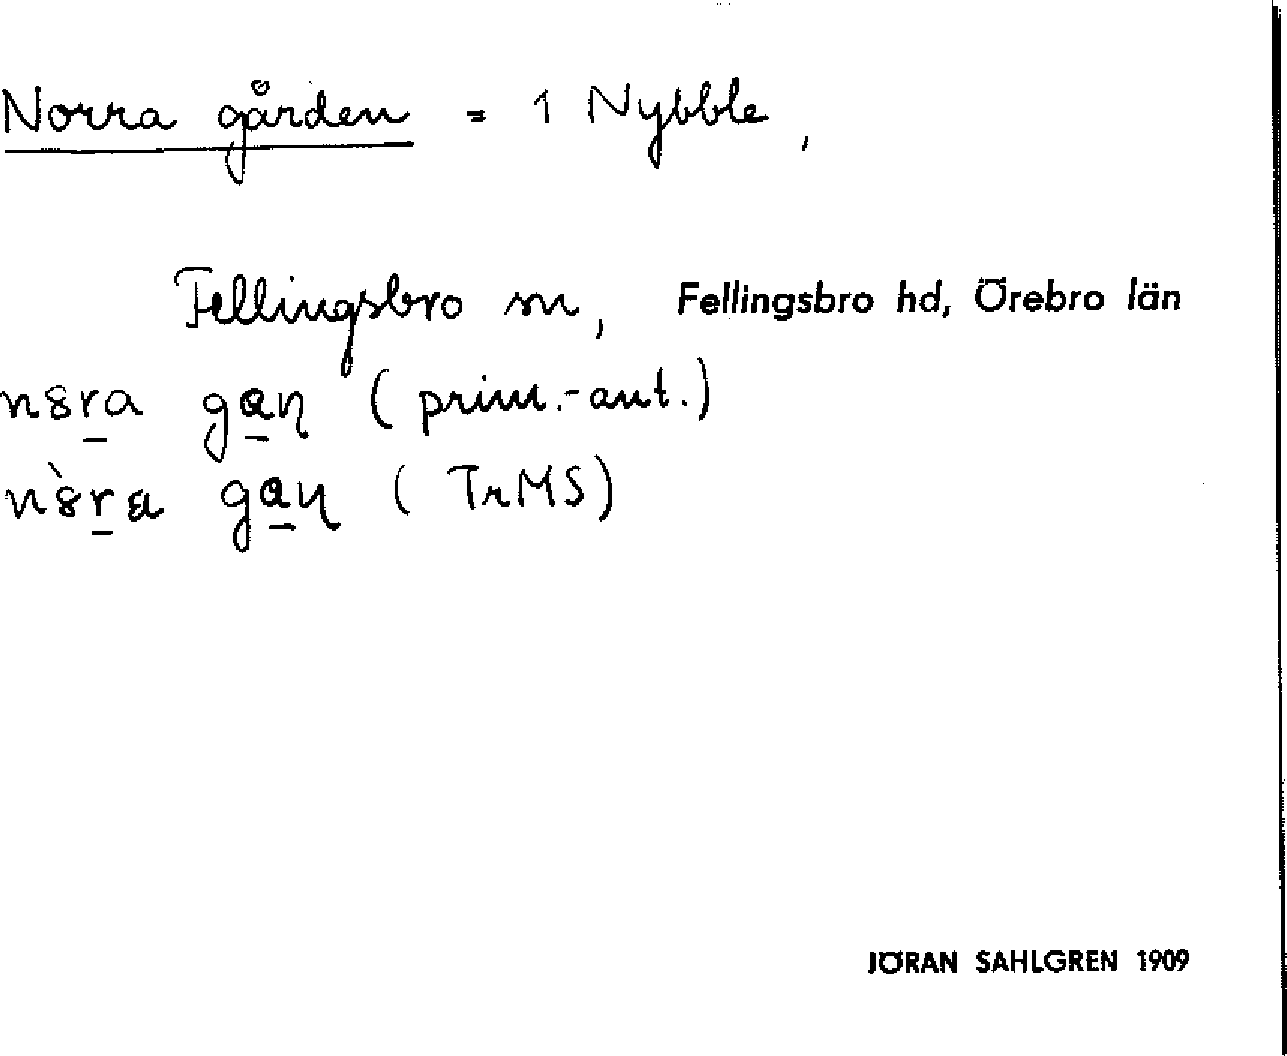 Norra gården = 1 Nybble,
Fellingsbro sn, Fellingsbro hd, Örebro län
n8r̠a ga̠ɳ (prim.-ant.)
n8̀r̠a ga̠ɳ (TrMS)
JÖRAN SAHLGREN 1909